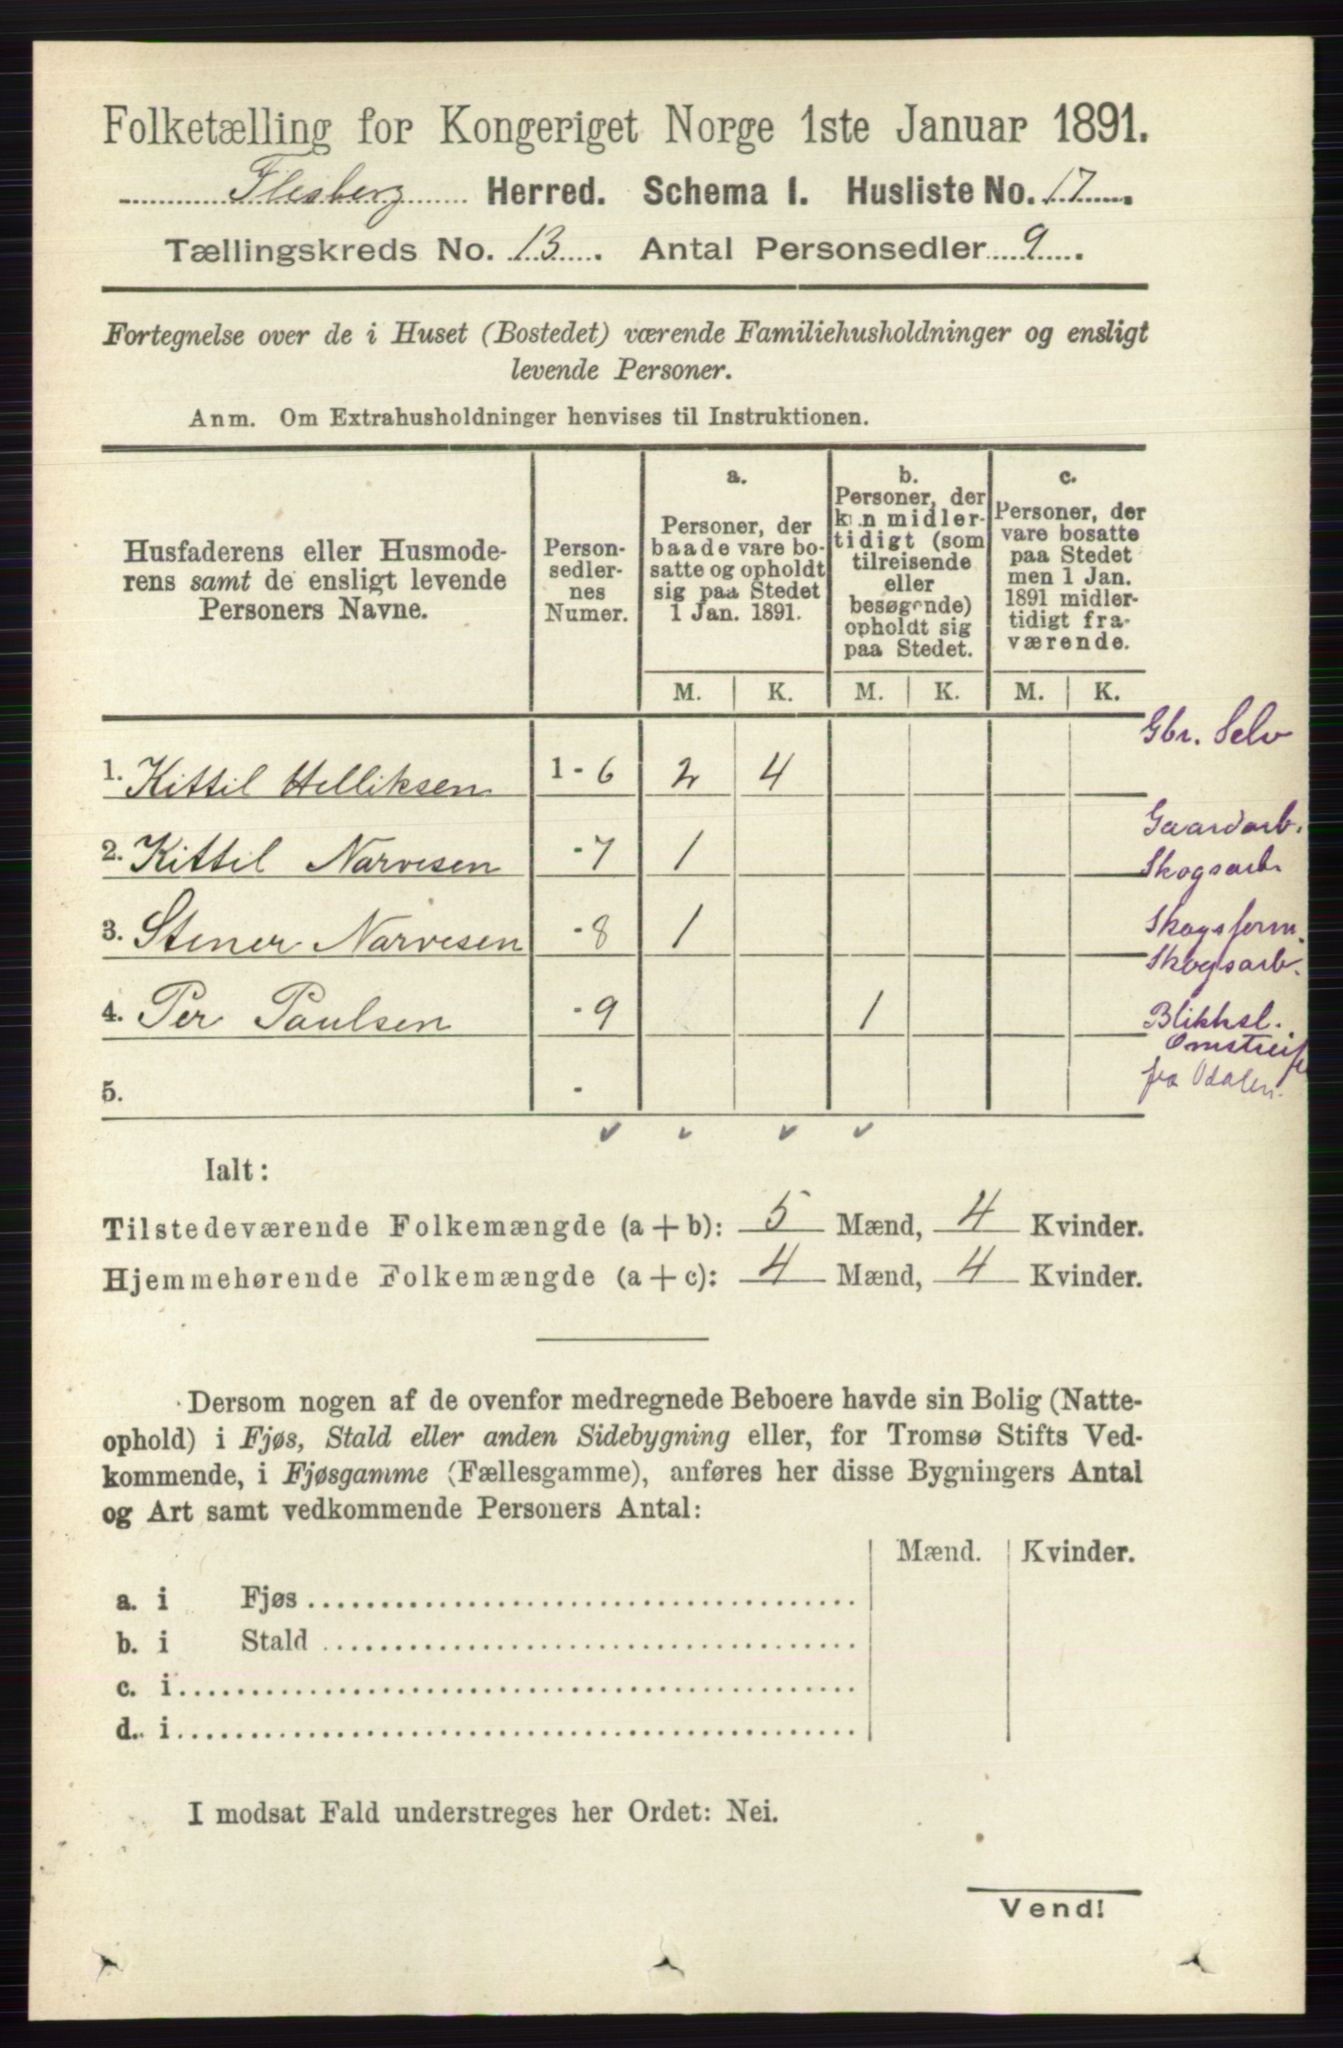 Folketælling for Kongeriget Norge 1ste Januar 1891.
Flesberg Herred. Schema I. Husliste No. 17.
Tællingskreds No. 13. Antal Personsedler 9.
Fortegnelse over de i Huset (Bostedet) værende Familiehusholdninger og ensligt
levende Personer.
Anm. Om Extrahusholdninger henvises til Instruktionen.
Husfaderens eller Husmode-
rens samt de ensligt levende
Personers Navne.
Person-
sedler-
nes
Numer.
a.
Personer, der
baade vare bo-
satte og opholdt
sig paa Stedet
1 Jan. 1891.
b.
Personer, der
kun midler-
tidigt (som
tilreisende
eller
besøgende)
opholdt sig
paa Stedet.
c.
Personer, der
vare bosatte
paa Stedet
men 1 Jan.
1891 midler-
tidigt fra-
værende.
M. K. M. K. M. K.
Gbr. Selv
1. Kittil Helliksen 1-6 2 4
Gaardarb.
2. Kittil Narvesen -7 1
Skogsarb.
3. Stener Narvesen -8 1
Skogsform.
Skogsarb.
4. Per Paulsen -9 1
Blikksl.
Omstreif
fra Odalen.
5. -
Ialt:
Tilstedeværende Folkemængde (a + b): 5 Mænd, 4 Kvinder.
Hjemmehørende Folkemængde (a + c): 4 Mænd, 4 Kvinder.
Dersom nogen af de ovenfor medregnede Beboere havde sin Bolig (Natte-
ophold) i Fjøs, Stald eller anden Sidebygning eller, for Tromsø Stifts Ved-
kommende, i Fjøsgamme (Fællesgamme), anføres her disse Bygningers Antal
og Art samt vedkommende Personers Antal:
Mænd. Kvinder.
a. i Fjøs
b. i Stald
c. i
d. i
I modsat Fald understreges her Ordet: Nei.
Vend!